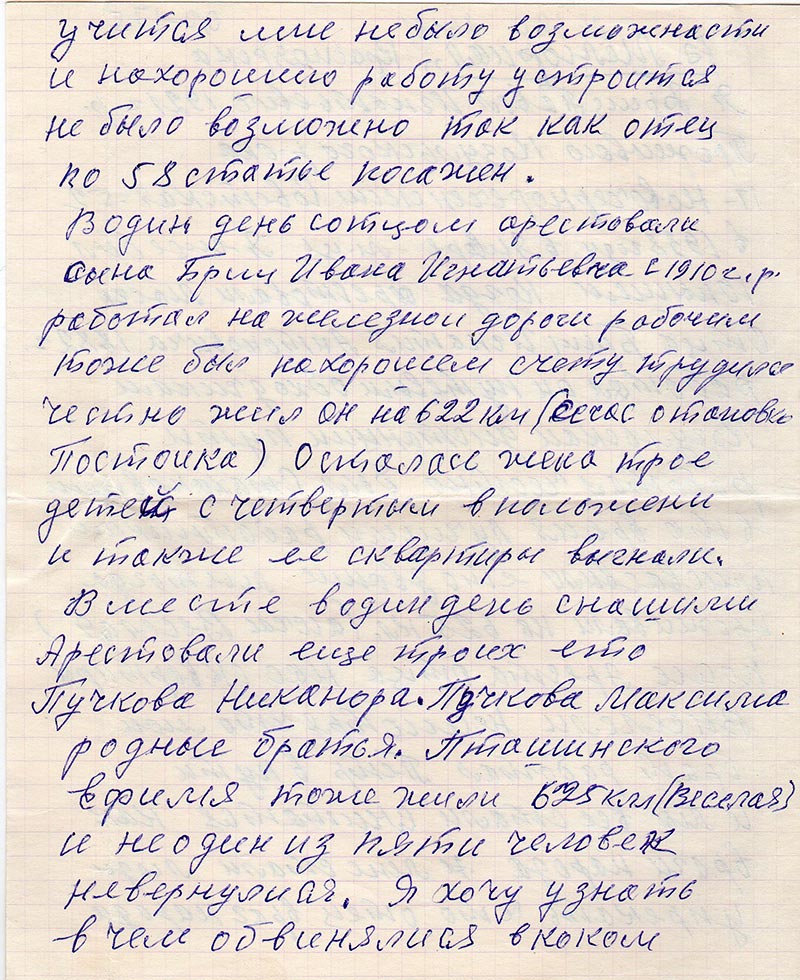 учится мне небыло возможнасти
и нахорошию работу устроится
не было возможено так как отец
по 58 статье посажен.
Водин день сотцом арестовали
сына Бриц Ивана Игнатьевича с 1910 г.р.
работал на железной дороги рабочим
тоже был нахорошем счету трудился
честно жил он на 622 км (сечас отановка
Постоика) Осталасс жена трое
детей с четвертым вположени
и также ее сквартиры выгнали.
Вместе водиндень снашими
Арестовали еще троих ето
Пучкова Никанора. Пучкова Максима
родные братья. Пташинского
вфимя тоже жили 625 км (Веселая)
и неодин из пяти человек
невернулися. Я хочу узнать
в чем обвинялися вкоком